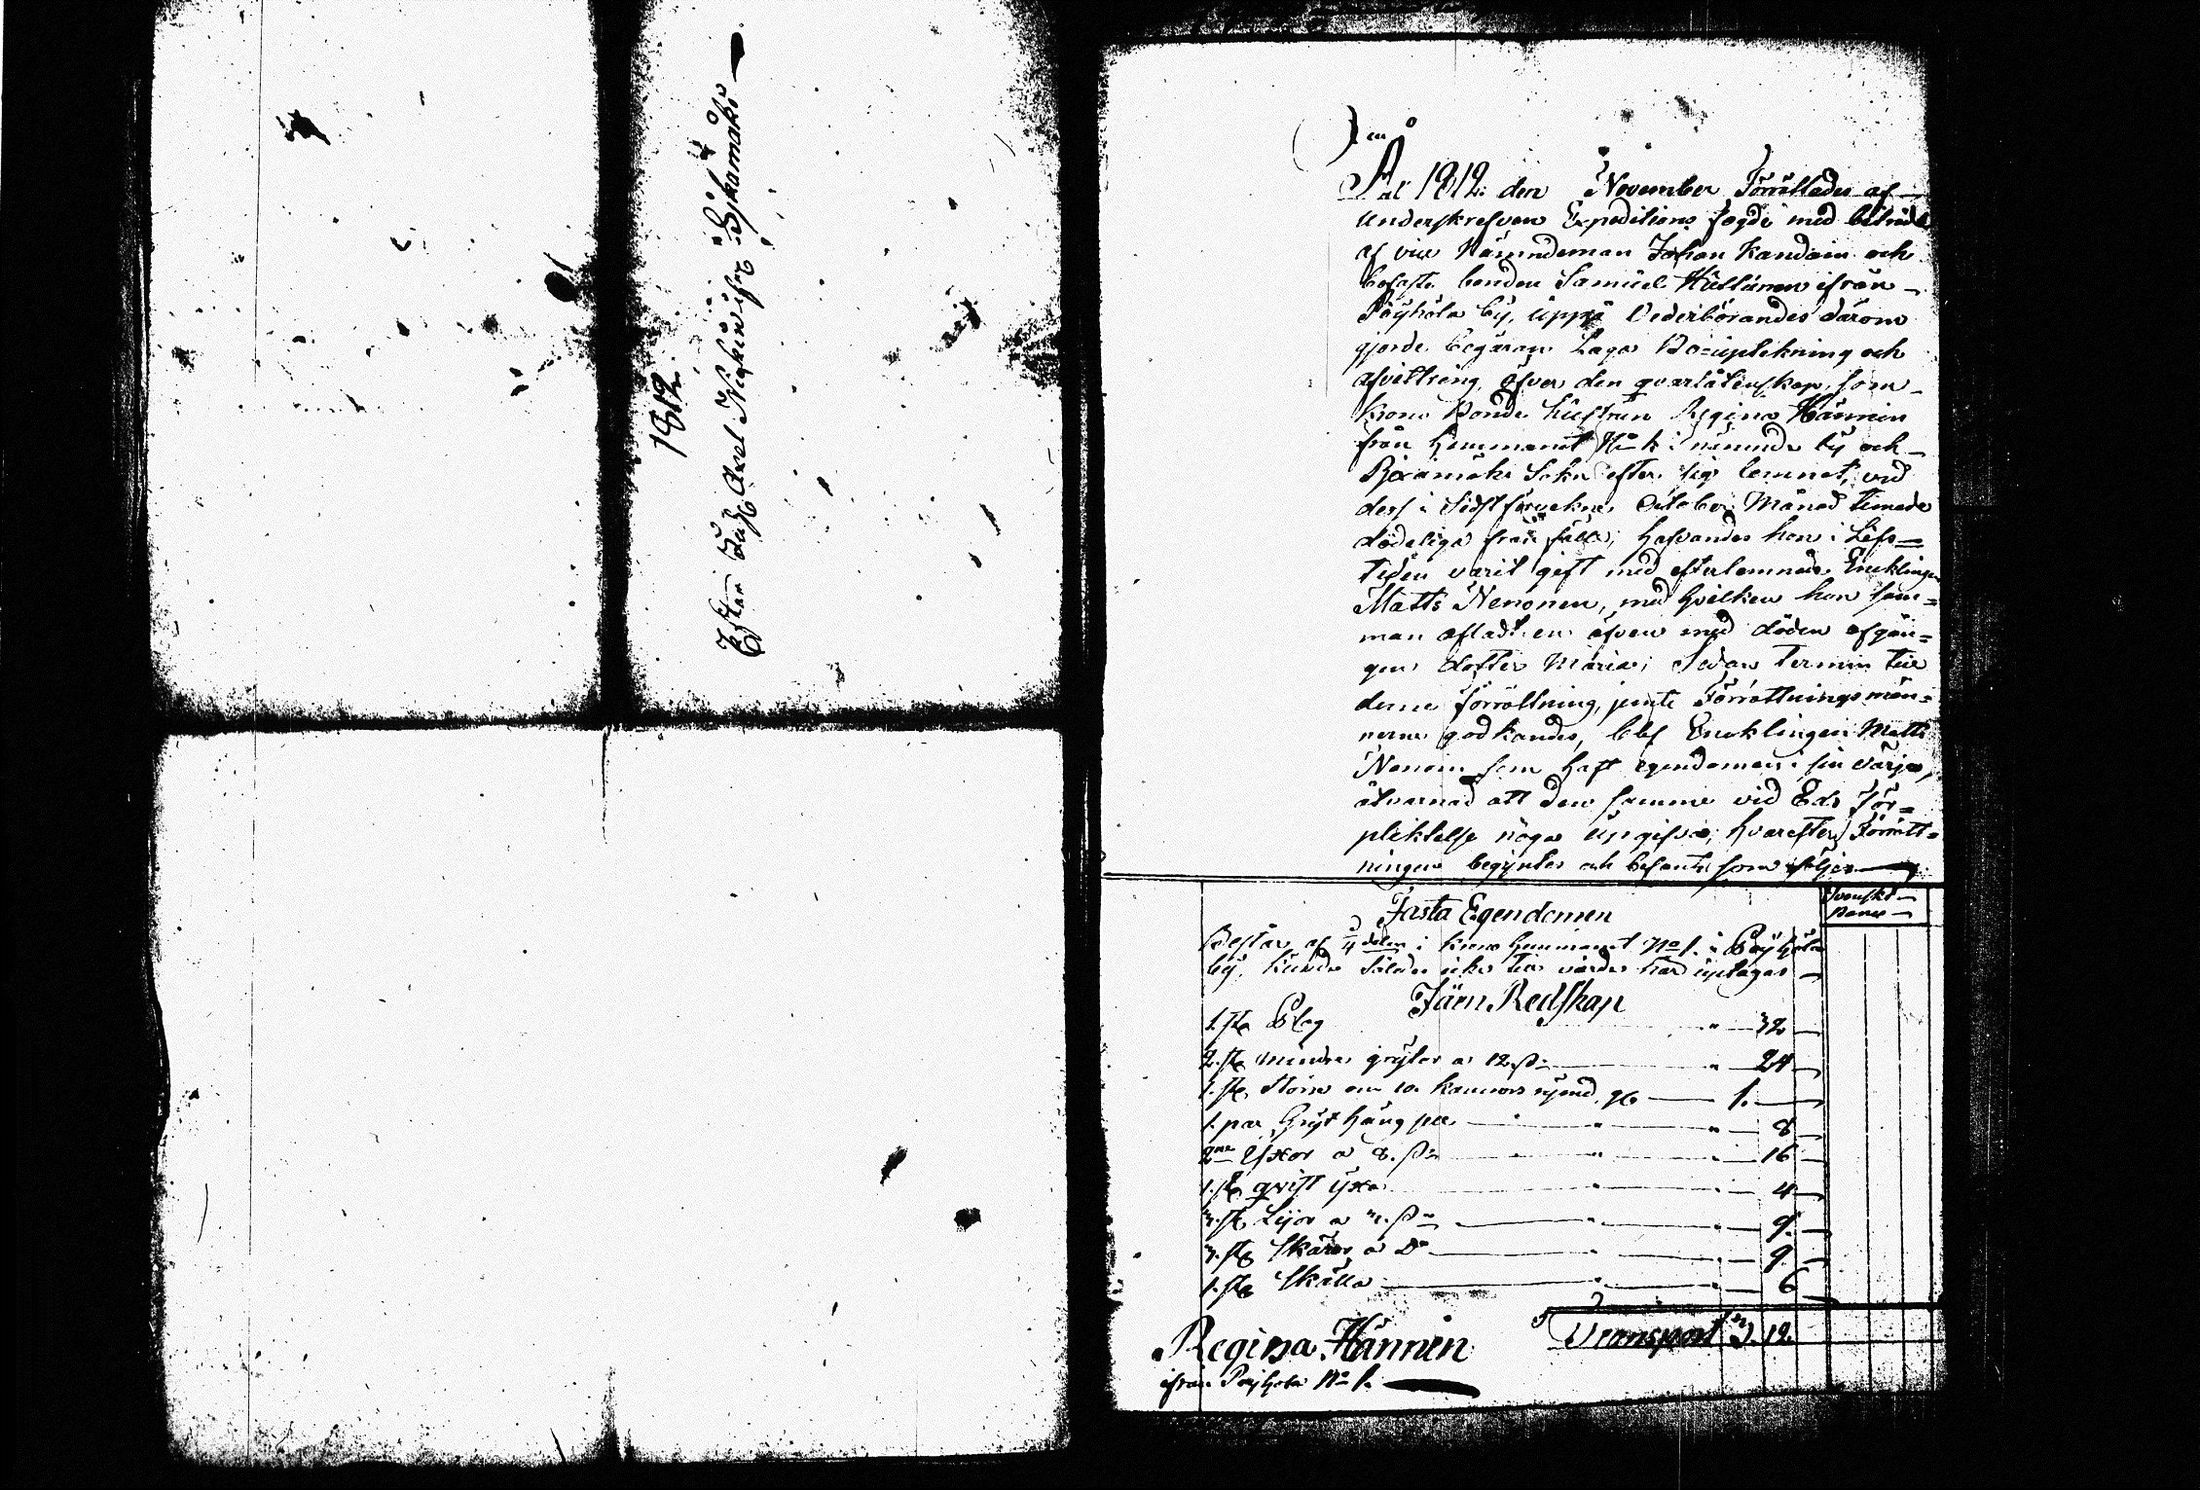 1812.
Efter Axel Nisken ifr. Sjkamäki
År 1812 den November Förrättades af
Underskrefven Expeditions fogde med biträde
af vice Nämndeman Johan Kandain och
bofaste bonden Samuel Hallunen ifrån
Pöyhölä by, uppå Vederbörandes därom
gjorde begäran Laga Bouptekning och
afvittring öfver den qvarlåtenskap, som
Krono Bonde hustrun Regina Hännin
från Hemmanet N:o 1 i nämnde by och
Rjxämäki Sokn efter sig lemnat, vid
dess i sidstförvekne October Månad timade
dödeliga frånfälle; hafvandes hon i Lifs=
tiden varit gift med efterlemnade Enklingen
Matts Nenonen, med hvilken hon sam=
man afladt en äfven med döden afgån=
gen dotter Maria; Sedan termin till
denne förrättning, jemte Förrättningsmän=
nerne godkändes, blef Enklingen Matts
Nenonen som haft egendomen i sin värjo,
åtvarnad att den samme vid Eds För=
pliktelse noga Upgifva; hvarefter Förrätt=
ningen begyntes och befants som följer
Svenskt
Fasta Egendomen
Består af 3/4 delen i krono hemmanet No 1. i Pöyhölä
by, kunde således icke till värdet här uptagas
Järn Redskap
1. st. Plog 32
2. st. mindre grytor a 12 ß 24
1. st. större om 10 kannors rymd 1.
1. par Grythängslen 8
2ne Yxor a 8. ß 16
1. st. qvist yxa 4
3. st. Lijor a 3. ß 9.
3. st. Skäror a D:o 9
1. st. Skälla 6
Transport 3. 12.
Regina Hännin
ifrån Pöyhölä No 1.